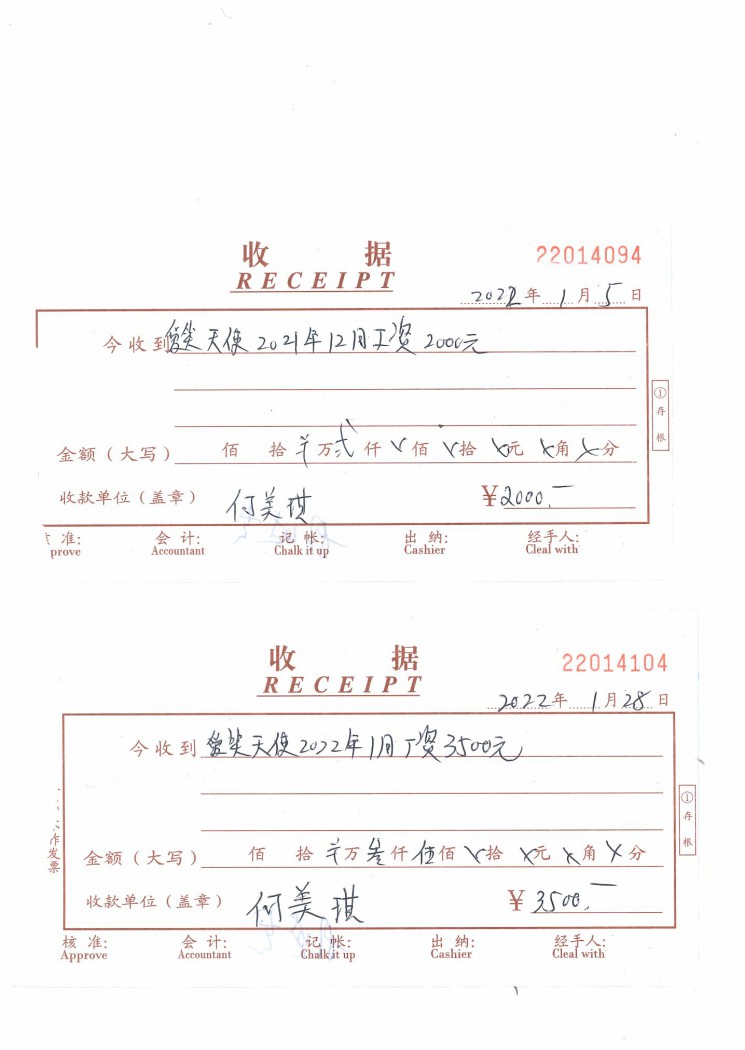 收 据
22014094
RECEIPT
2022年1月5日
今收到 天使2021年12月工资2000元
①存根
金额（大写） 佰 拾 羊万 弍仟 佰 拾 元 角 分
收款单位（盖章） 何美琪 ￥2000.一
准: 会 计: 记 帐: 出 纳: 经手人:
prove Accountant Chalk it up Cashier Cleal with
收 据
22014104
RECEIPT
2022年1月28日
今收到 天使2022年1月工资3500元
①存根
作发票
金额（大写） 佰 拾 羊万 叁仟 伍佰 拾 元 角 分
收款单位（盖章） 何美琪 ￥3500.一
核 准: 会 计: 记 帐: 出 纳: 经手人:
Approve Accountant Chalk it up Cashier Cleal with